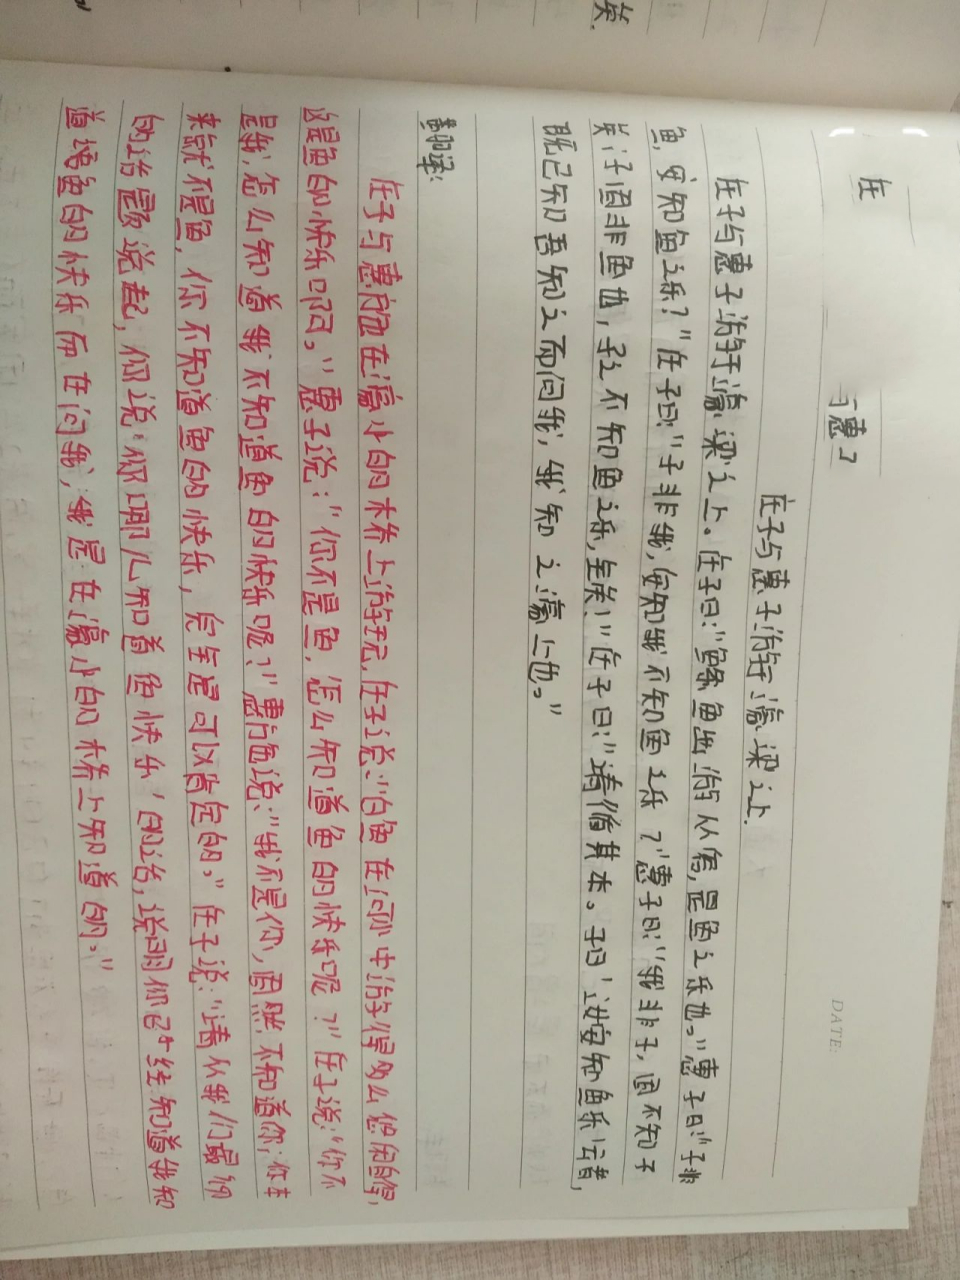 庄
与惠
DATE:
庄子与惠子游于濠梁之上.
庄子与惠子游于濠梁之上。庄子曰:"鲦鱼出游从容,是鱼之乐也。"惠子曰:"子非
鱼,安知鱼之乐?"庄子曰:"子非我,安知我不知鱼之乐?"惠子曰:"我非子,固不知子
矣;子固非鱼也,子之不知鱼之乐,全矣!"庄子曰:"请循其本。子曰'汝安知鱼乐'云者,
既已知吾知之而问我,我知之濠上也。"
参考译:
庄子与惠施在濠水的桥上游玩,庄子说:"白鱼在河水中游得多么悠闲自得,
这是鱼的快乐啊。"惠子说:"你不是鱼,怎么知道鱼的快乐呢?"庄子说:"你不
是我,怎么知道我不知道鱼的快乐呢?"惠施说:"我不是你,固然不知道你;你本
来就不是鱼,你不知道鱼的快乐,完全是可以肯定的。"庄子说:"请从我们最初
的话题说起,你说:'你哪儿知道鱼快乐'的话,说明你已经知道我知
道鱼的快乐而在问我,我是在濠水的桥上知道的。"